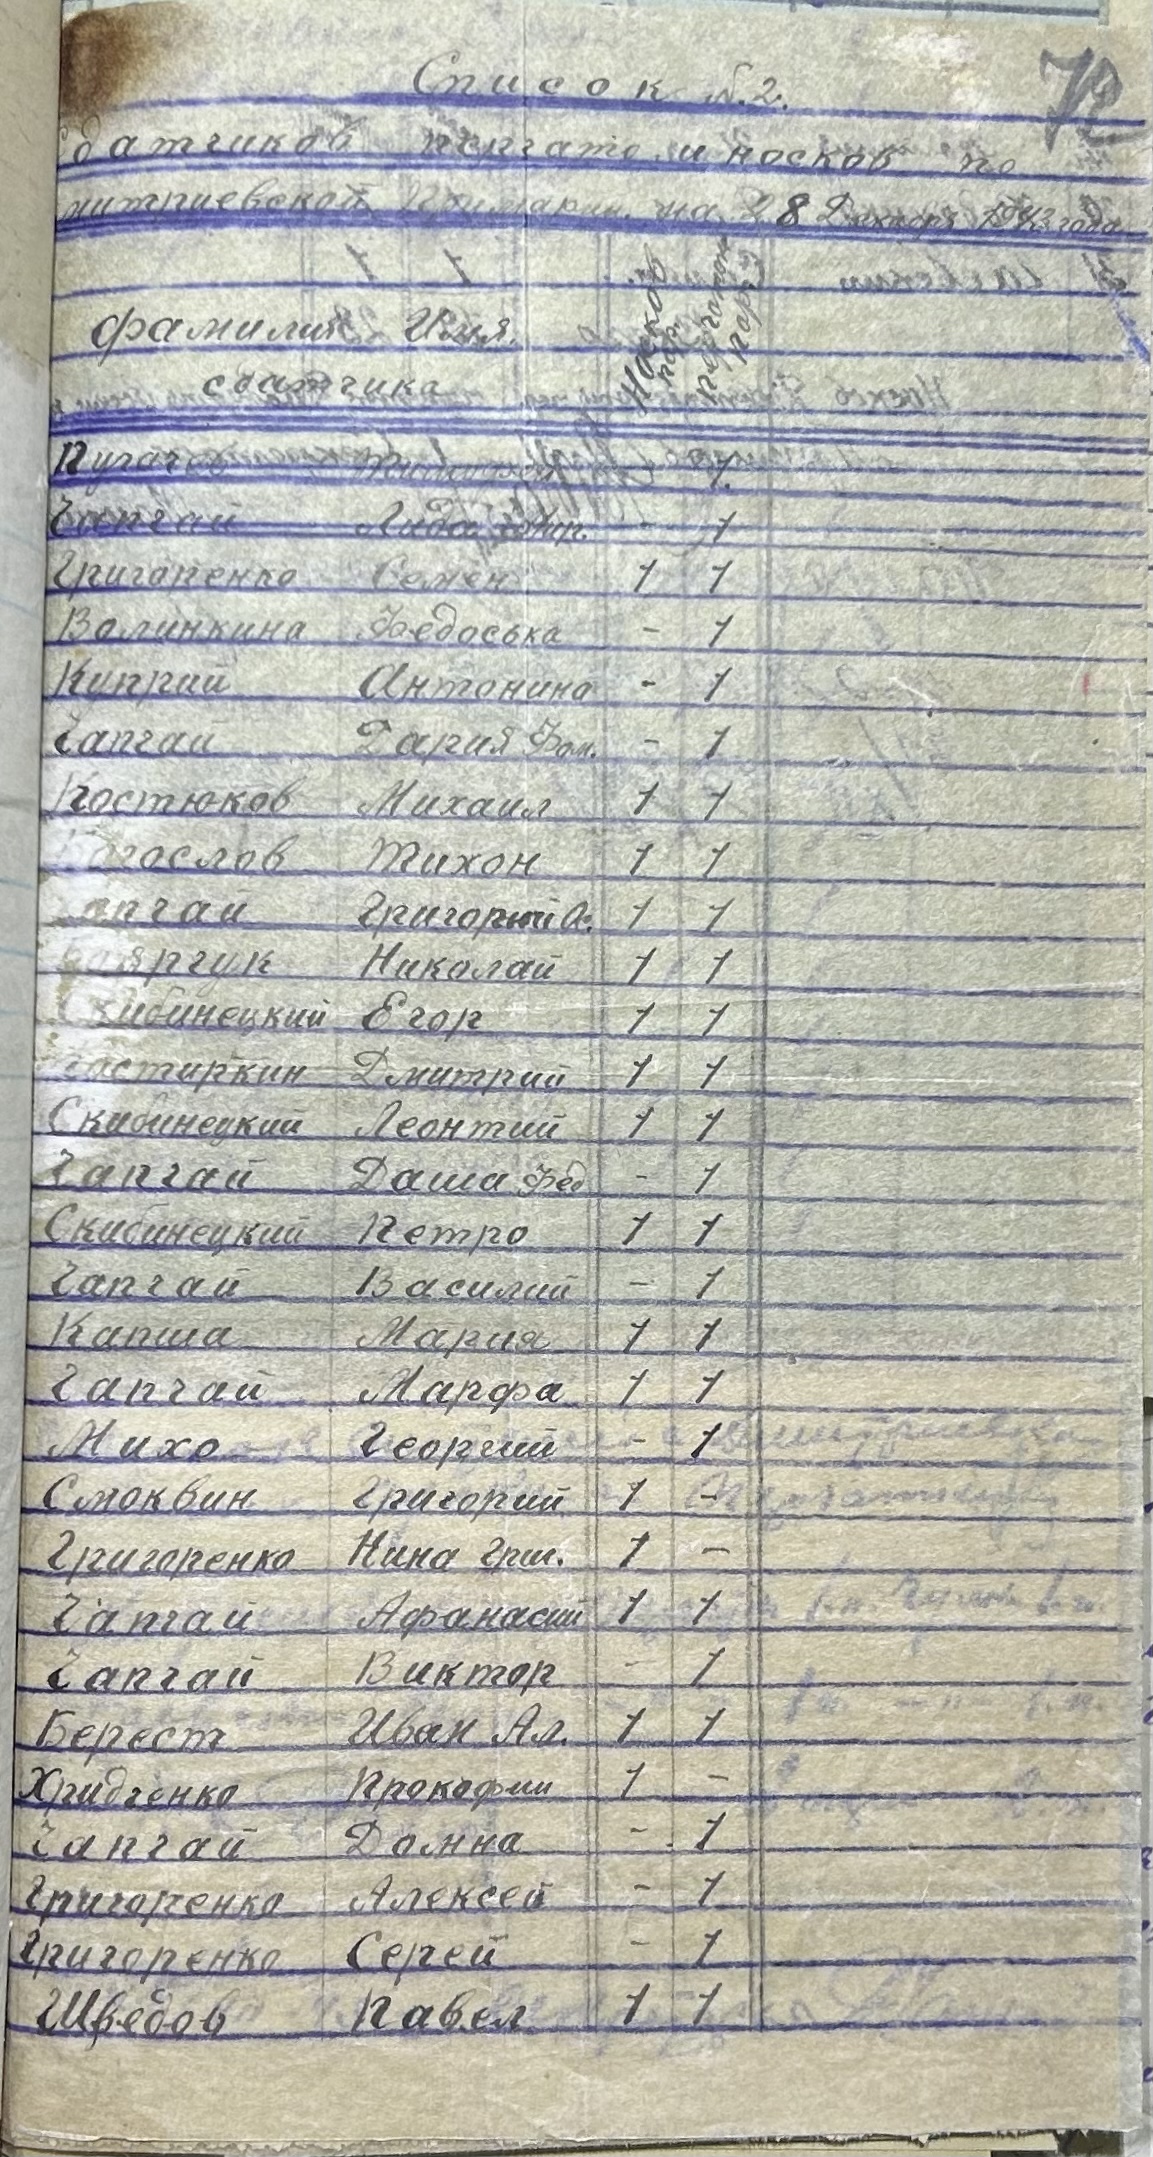 Список №2.
72
Сдатчиков перчаток и носков по
митриевской Примарии на 28 Декабря 1943 года
Фамилия Имя. Носков пар. перчаток пар
сдатчика
Пугачев Тимофей - 1.
Чапчай Лида - 1
Григоренко Семён 1 1
Волинкина Федоська - 1
Куприй Антонина - 1
Чапчай Дария Фом. - 1
Костюков Михаил 1 1
Богослов Тихон 1 1
Чапчай Григорий А. 1 1
Боярчук Николай 1 1
Скибинецкий Егор 1 1
Дмитрий 1 1
Скибинецкий Леонтий 1 1
Чапчай Даша Фед - 1
Скибинецкий Петро 1 1
Чапчай Василий - 1
Капша Мария 1 1
Чапчай Марфа 1 1
Михо Георгий - 1
Смоквин Григорий 1 -
Григоренко Нина Григ. 1 -
Чапчай Афанасий 1 1
Чапчай Виктор - 1
Берест Иван Ал. 1 1
Хридченко Прокофии 1 -
Чапчай Домна - 1
Григоренко Алексей - 1
Григоренко Сергей - 1
Шведов Павел 1 1